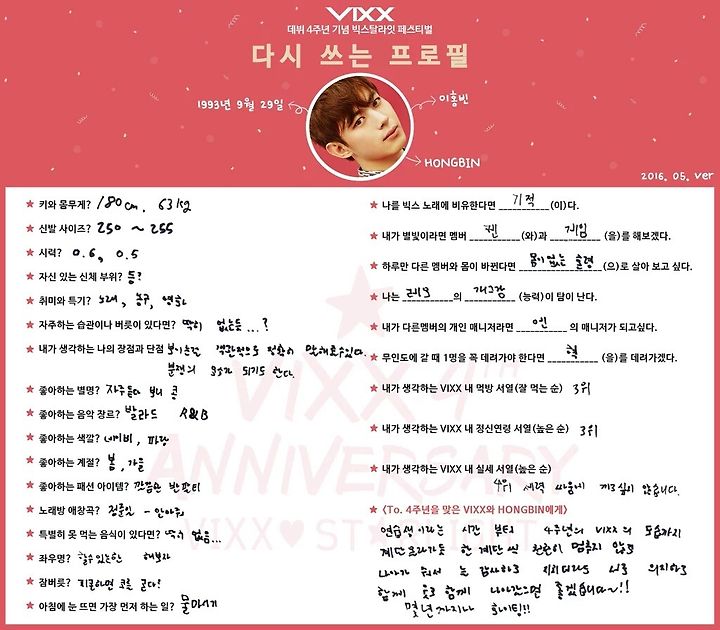 VIXX
데뷔 4주년 기념 빅스탈라잇 페스티벌
다시 쓰는 프로필
1993년 9월 29일
이홍빈
HONGBIN
2016. 05. ver
★ 키와 몸무게? 180cm. 63kg
★ 신발 사이즈? 250 ~ 255
★ 시력? 0.6, 0.5
★ 자신 있는 신체 부위? 등?
★ 취미와 특기? 노래, 농구, 영화
★ 자주하는 습관이나 버릇이 있다면? 딱히 없는듯...?
★ 내가 생각하는 나의 장점과 단점 객관적으로 정확히 말해줄수있다.
분쟁의 요소가 되기도 한다.
★ 좋아하는 별명? 자주듣다 보니 콩
★ 좋아하는 음악 장르? 발라드 R&B
★ 좋아하는 색깔? 네이비, 파랑
★ 좋아하는 계절? 봄, 가을
★ 좋아하는 패션 아이템? 깔끔한 반팔티
★ 노래방 애창곡? 정준일 - 안아줘
★ 특별히 못 먹는 음식이 있다면? 딱히 없음...
★ 좌우명? 할수있는한 해보자
★ 잠버릇? 피곤하면 코를 곤다!
★ 아침에 눈 뜨면 가장 먼저 하는 일? 물마시기
★ 나를 빅스 노래에 비유한다면 기적(이)다.
★ 내가 별빛이라면 멤버 켄(와)과 게임(을)를 해보겠다.
★ 하루만 다른 멤버와 몸이 바뀐다면 몸이없는 술령(으)로 살아 보고 싶다.
★ 나는 레오의 개그감(능력)이 탐이 난다.
★ 내가 다른멤버의 개인 매니저라면 엔의 매니저가 되고싶다.
★ 무인도에 갈 때 1명을 꼭 데려가야 한다면 혁(을)를 데려가겠다.
★ 내가 생각하는 VIXX 내 먹방 서열(잘 먹는 순) 3위
★ 내가 생각하는 VIXX 내 정신연령 서열(높은 순) 3위
★ 내가 생각하는 VIXX 내 실세 서열(높은 순)
4위 세력 싸움에 끼고싶지 않습니다.
★ <To. 4주년을 맞은 VIXX와 HONGBIN에게>
연습생이라는 시간 부터 4주년의 VIXX의 모습까지
계단올라가듯 한 계단씩 천천히 멈추지 않고
나아가 줘서 늘 감사하고 의지하며
함께 웃고 함께 나아갔으면 좋겠습니다~!!
몇년차지나 화이팅!!
VIXX 4TH
ANNIVERSARY
VIXX♥ST★RLIGHT